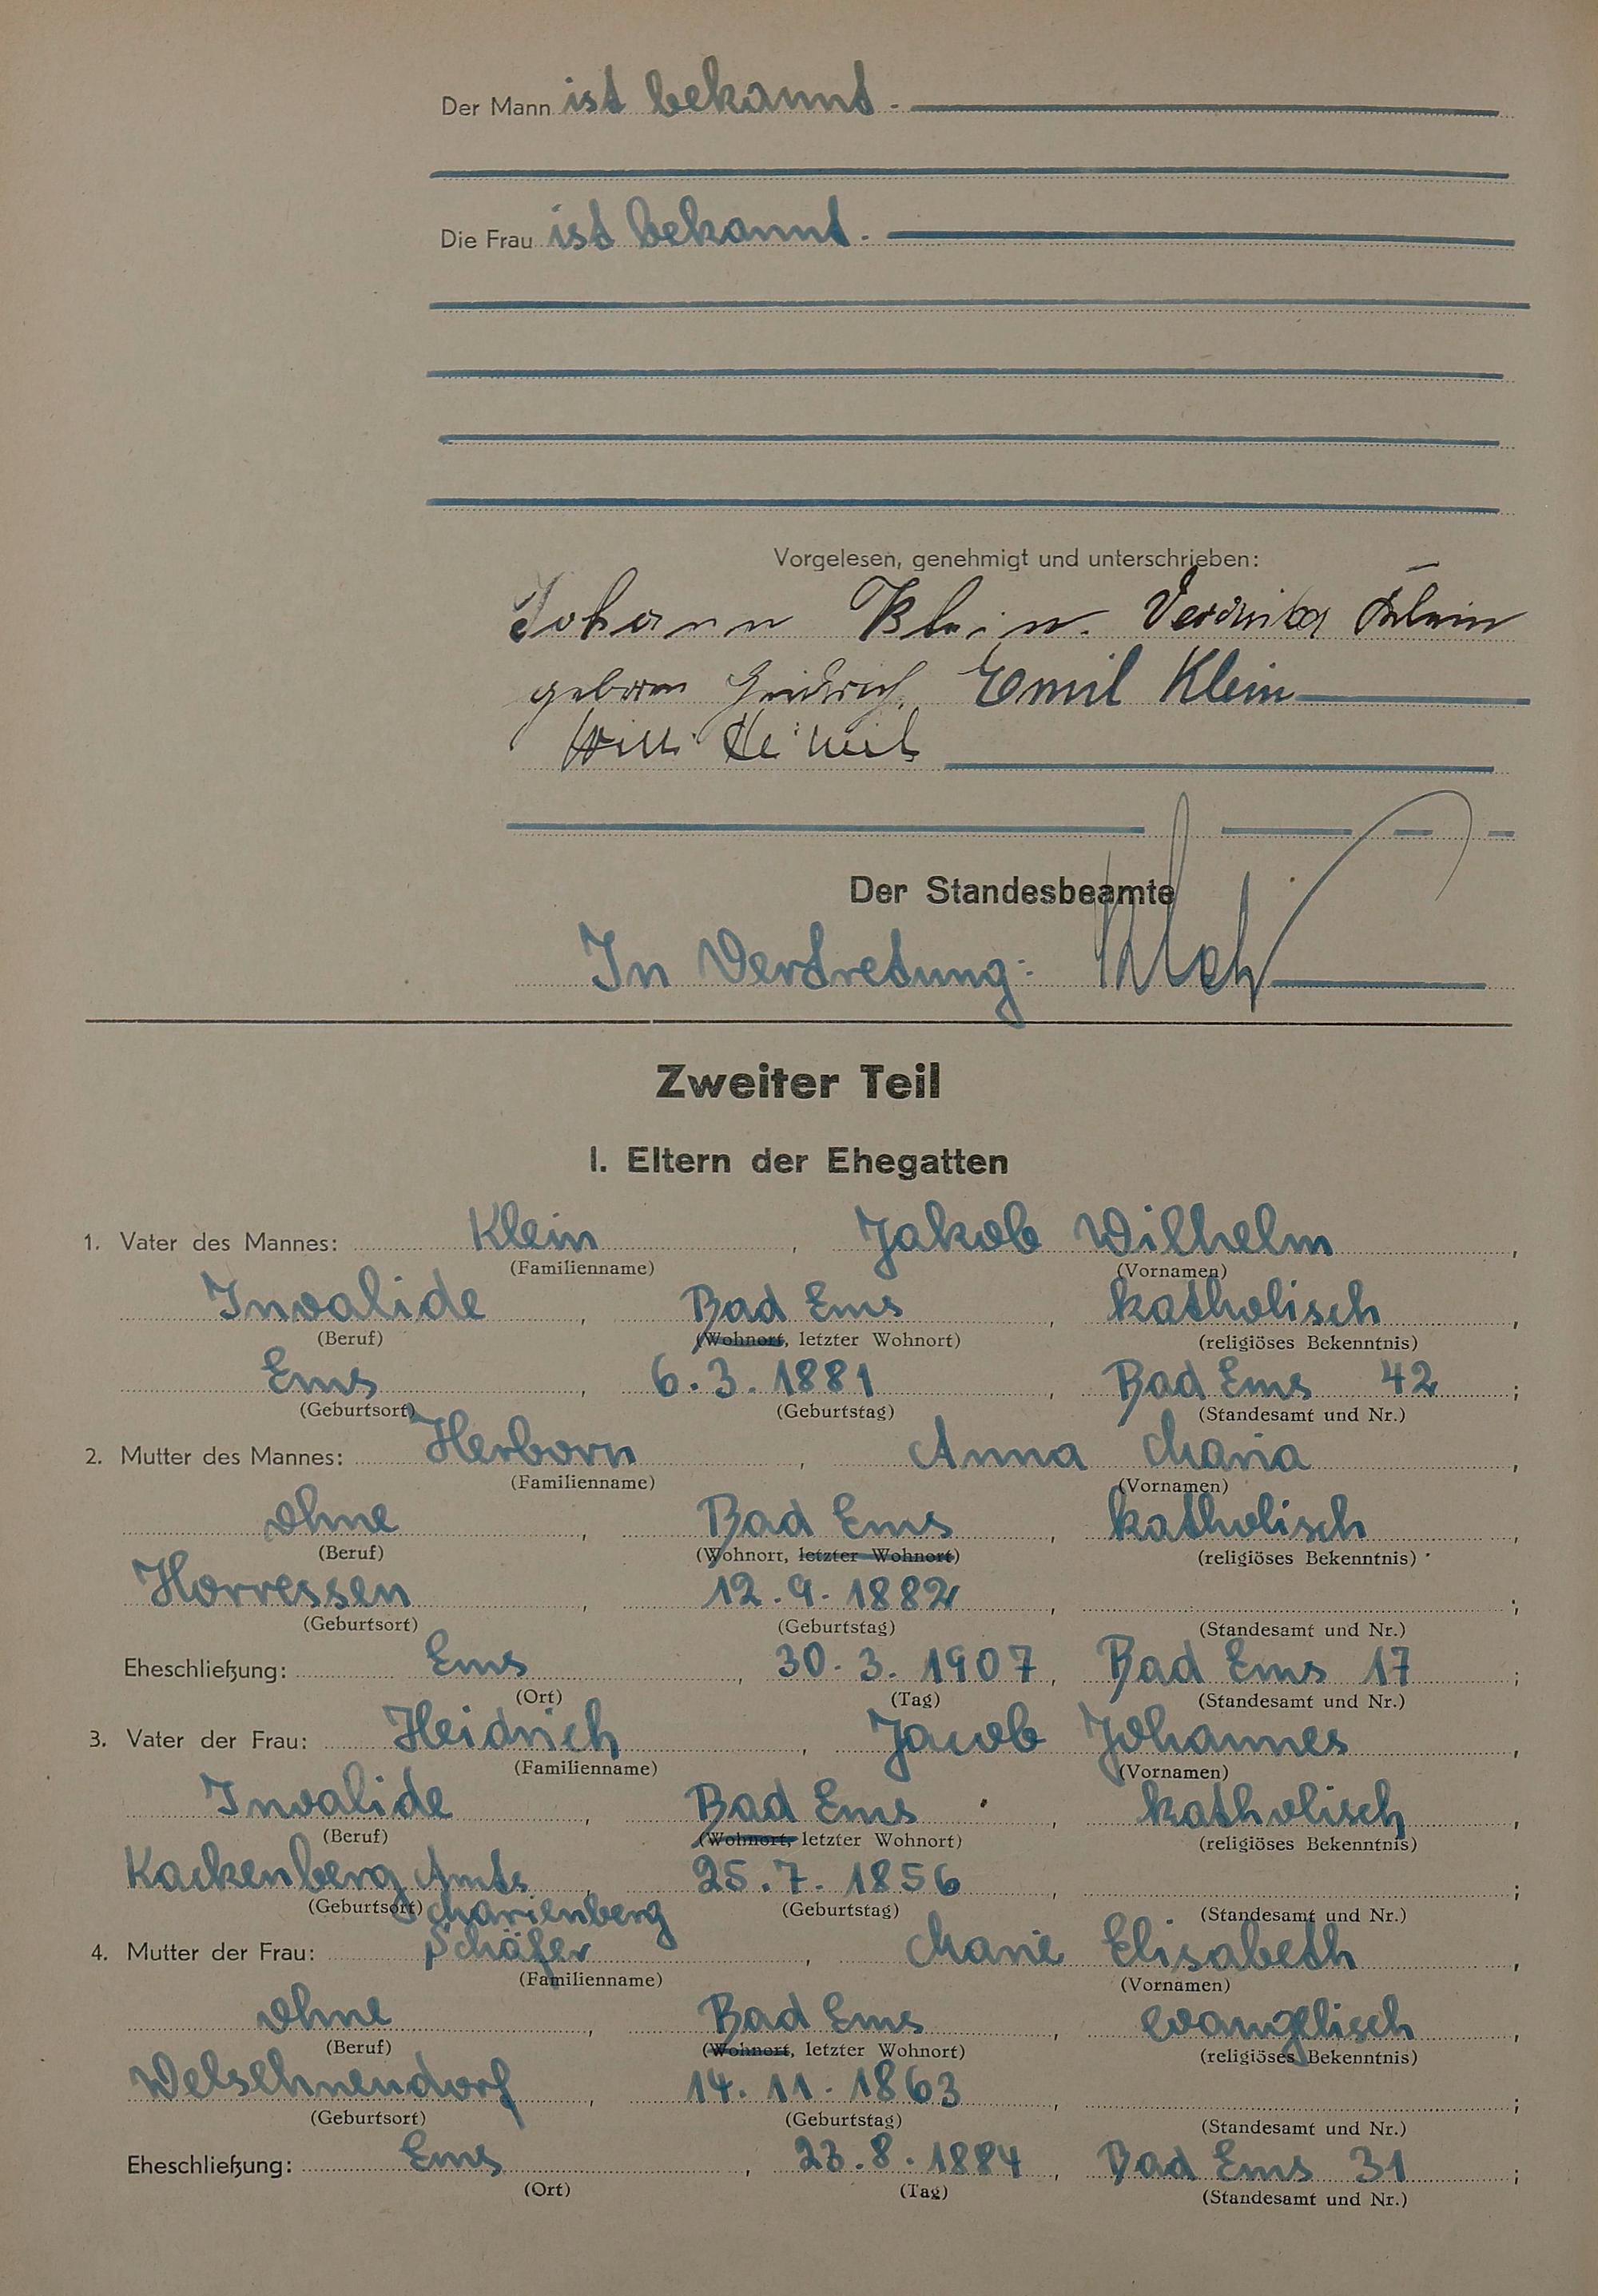 Der Mann ist bekannt.
Die Frau ist bekannt.
Vorgelesen, genehmigt und unterschrieben:
Johann Klein. Veronika Klein
geboren Heidrich. Emil Klein
Willi
Der Standesbeamte
In Vertretung:
Zweiter Teil
I. Eltern der Ehegatten
1. Vater des Mannes: Klein, Jakob Wilhelm,
(Familienname) (Vornamen)
Invalide, Bad Ems, katholisch,
(Beruf) (Wohnort, letzter Wohnort) (religiöses Bekenntnis)
Ems, 6.3.1881, Bad Ems 42;
(Geburtsort) (Geburtstag) (Standesamt und Nr.)
2. Mutter des Mannes: Herborn, Anna Maria,
(Familienname) (Vornamen)
ohne, Bad Ems, katholisch,
(Beruf) (Wohnort, letzter Wohnort) (religiöses Bekenntnis)
Horressen, 12.9.1882, ;
(Geburtsort) (Geburtstag) (Standesamt und Nr.)
Eheschließung: Ems, 30.3.1907, Bad Ems 17;
(Ort) (Tag) (Standesamt und Nr.)
3. Vater der Frau: Heidrich, Jacob Johannes,
(Familienname) (Vornamen)
Invalide, Bad Ems, katholisch,
(Beruf) (Wohnort, letzter Wohnort) (religiöses Bekenntnis)
Kackenberg Amts, 25.7.1856, ;
(Geburtsort) Marienberg (Geburtstag) (Standesamt und Nr.)
4. Mutter der Frau: Schäfer, Marie Elisabeth,
(Familienname) (Vornamen)
ohne, Bad Ems, evangelisch,
(Beruf) (Wohnort, letzter Wohnort) (religiöses Bekenntnis)
Welschnendorf, 14.11.1863, ;
(Geburtsort) (Geburtstag) (Standesamt und Nr.)
Eheschließung: Ems, 23.8.1884, Bad Ems 31;
(Ort) (Tag) (Standesamt und Nr.)